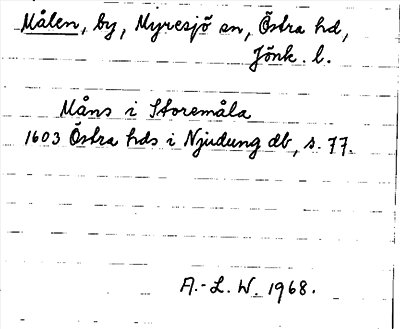 Målen, by, Myresjö sn, Östra hd,
Jönk. l.
Måns i Storemåla
1603 Östra hds i Njudung db, s. 77.
A.-L. W. 1968.